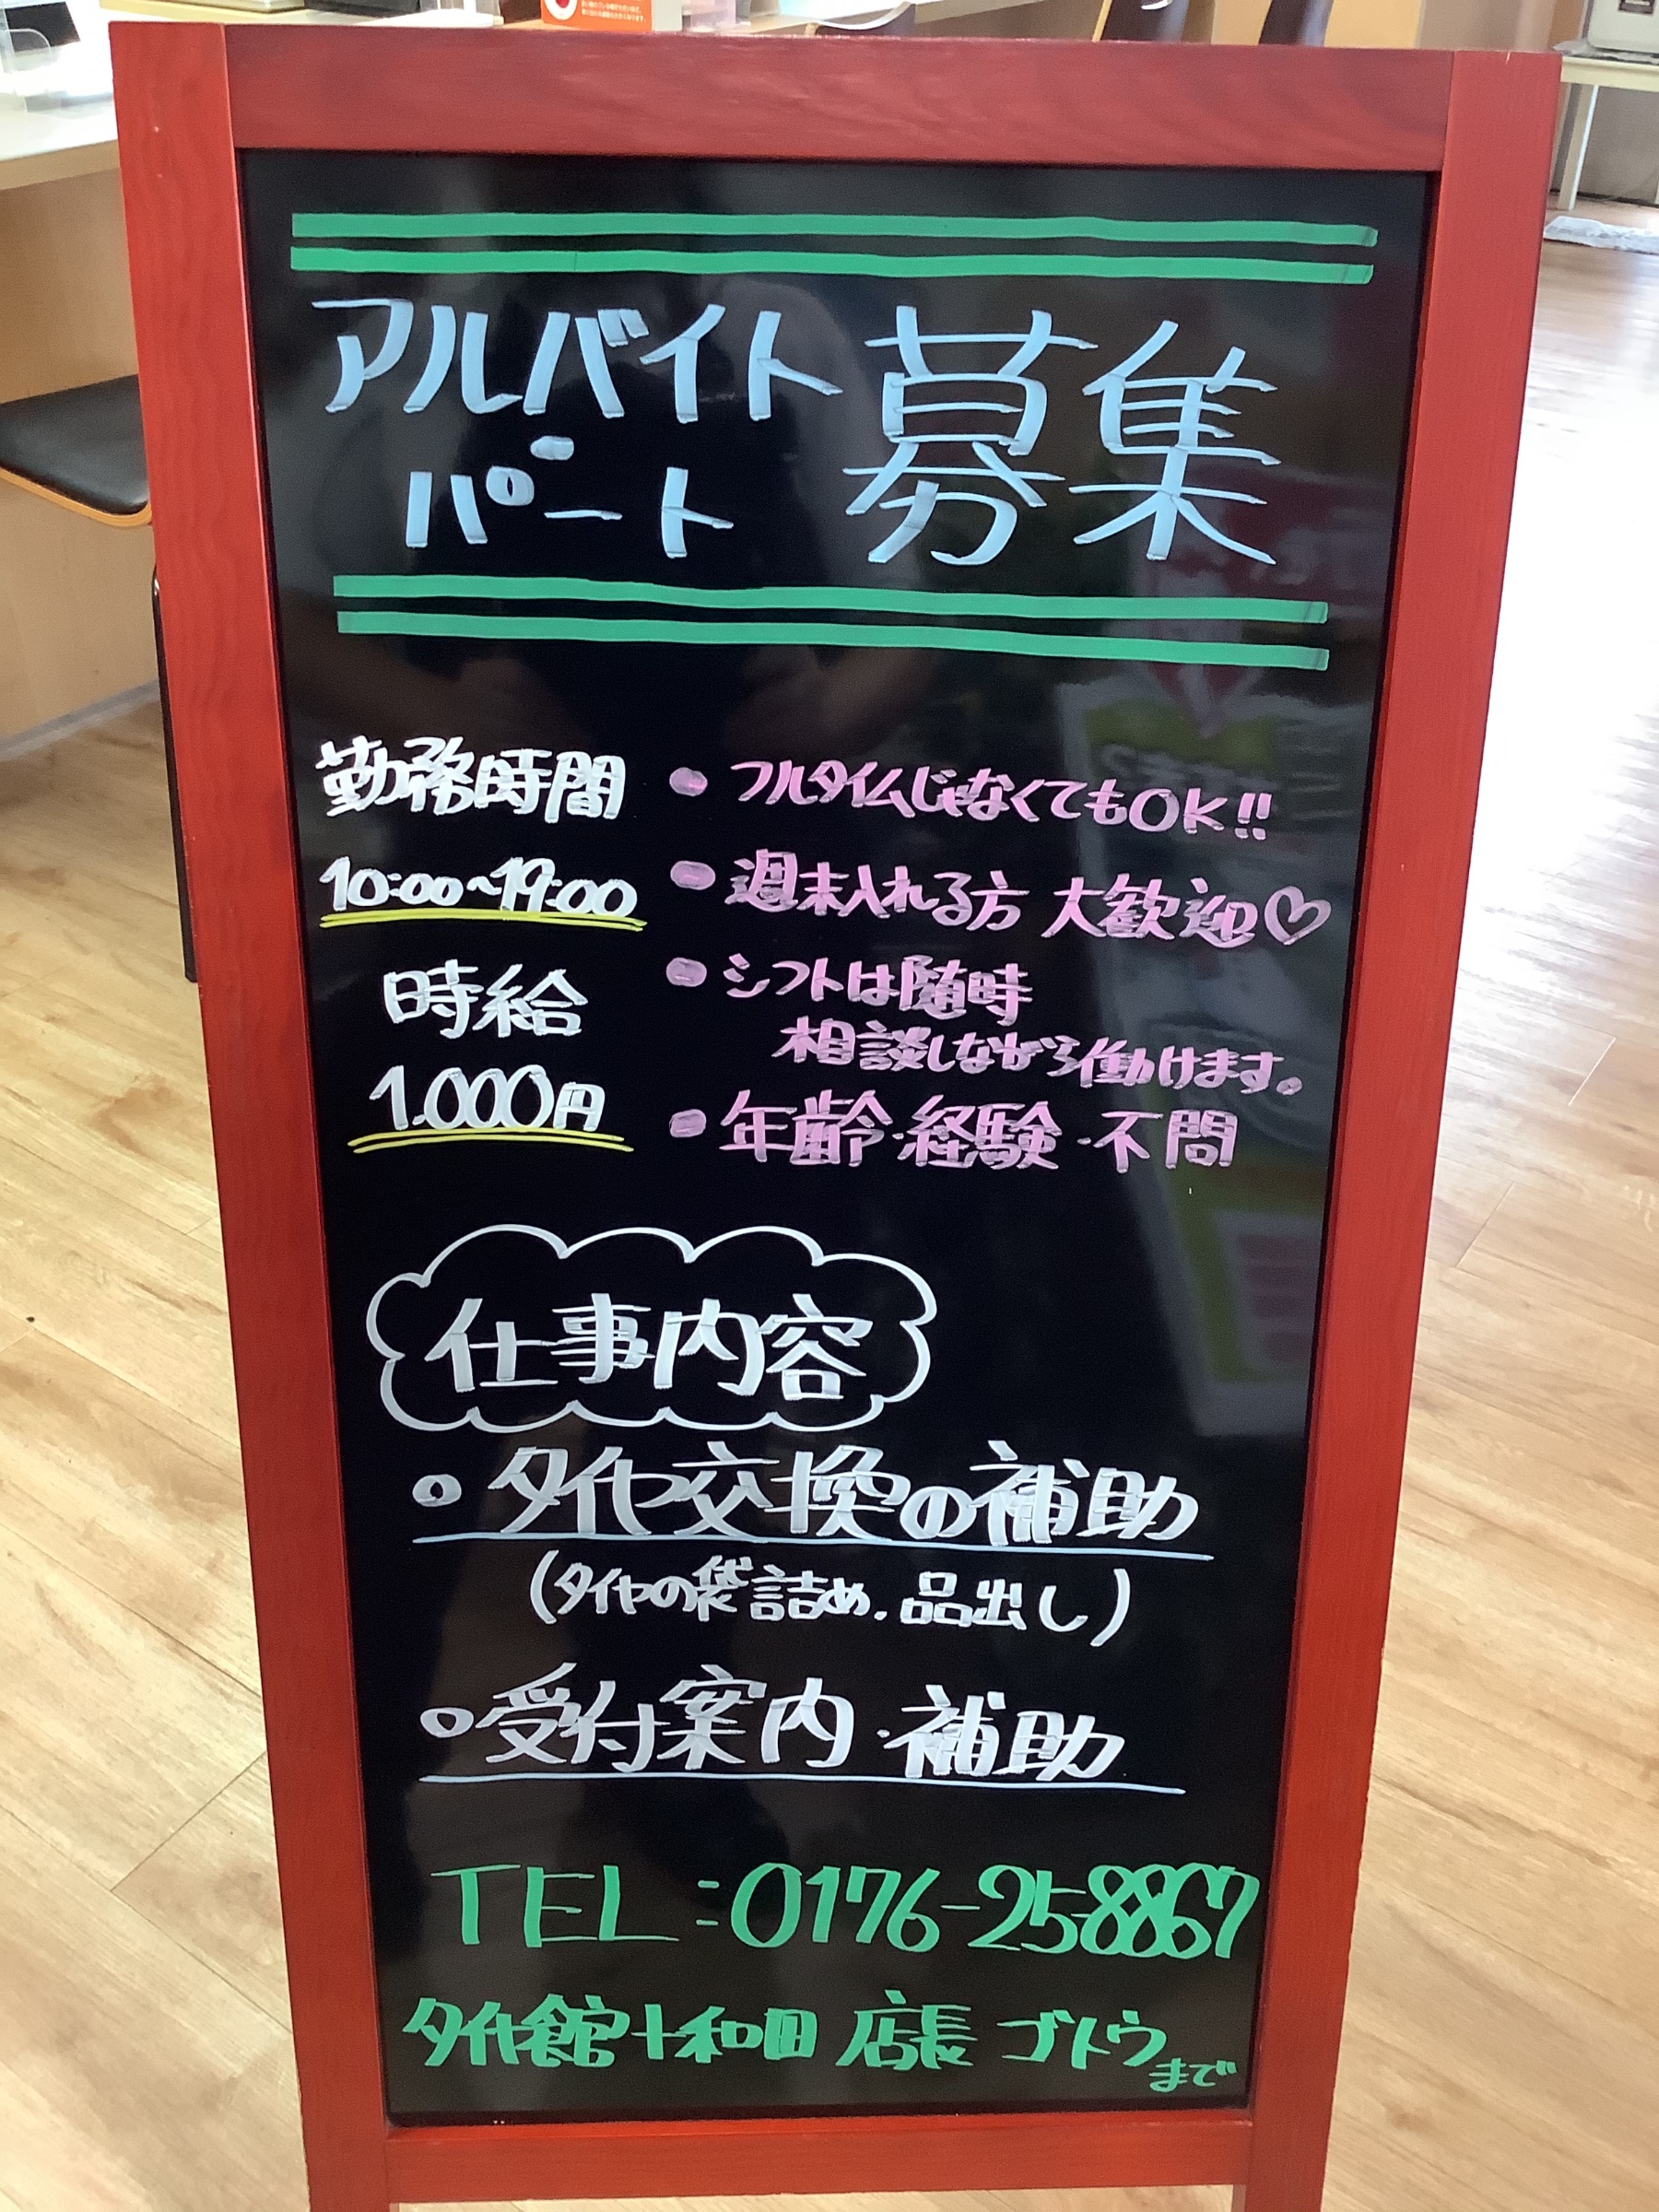 アルバイト
・
パート
募集
勤務時間
10:00~19:00
時給
1.000円
● フルタイムじゃなくてもOK!!
● 週末入れる方 大歓迎♡
● シフトは随時
相談しながら働けます。
● 年齢・経験・不問
仕事内容
○ タイヤ交換の補助
(タイヤの袋詰め.品出し)
○受付案内・補助
TEL:0176-25-8867
タイヤ館十和田 店長 ゴトウ
まで